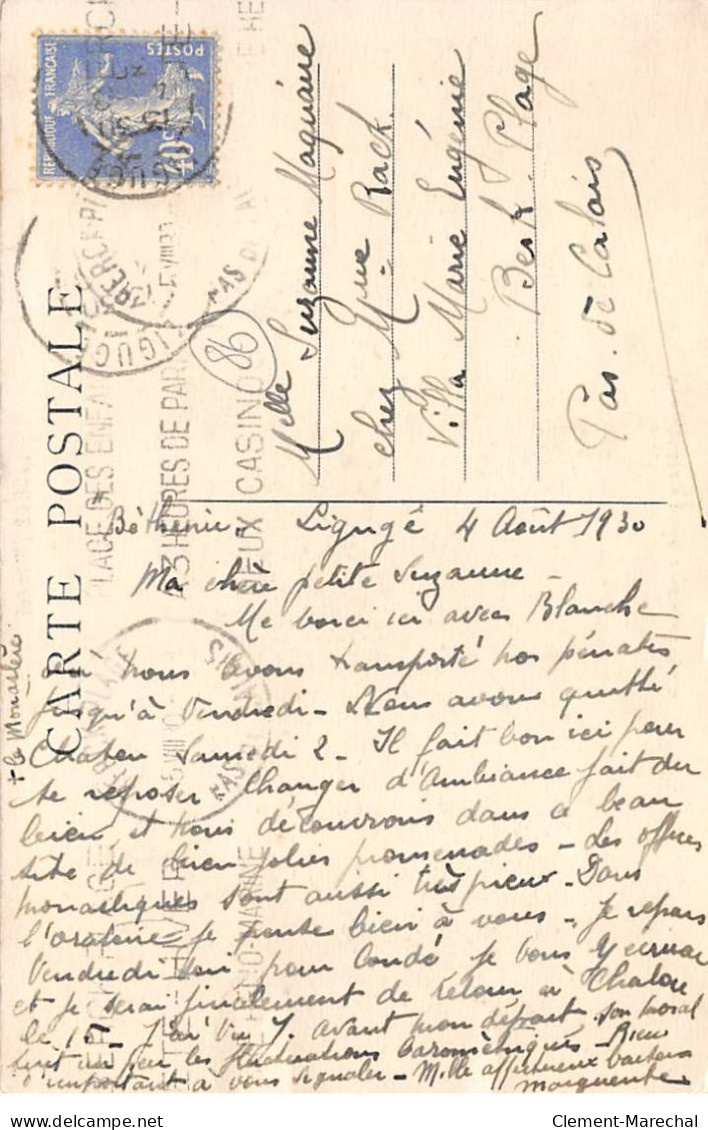 CARTE POSTALE
REPUBLIQUE FRANÇAISE
POSTES
40c
Melle Suzanne Maquaire
chez Mme Rack
Villa Marie Eugénie
Berk. Plage
Pas. de Calais
86
LIGUGE
PLAGE DES ENFANTS
A 3 HEURES DE PARIS
DEUX CASINOS
Ligugé 4 Août 1930
Ma chère petite Suzanne -
Me voici ici avec Blanche
où nous avons transporté nos pénates
jusqu'à Vendredi - Nous avons quitté
Samedi 2 - Il fait bon ici pour
se reposer changer d'ambiance fait du
bien et nous découvrons dans ce beau
site de bien jolies promenades - Les offices
monastiques sont aussi très pieux - Dans
l'oratoire je pense bien à vous - Je repars
Vendredi soir pour Condé je vous
et je serai finalement de retour à
le 15 - J'ai vu Y. avant mon départ son moral
suit un peu les fluctuations barométriques - Rien
d'important à vous signaler - Mille affectueux baisers
Marguerite
+ le Monastère
delcampe.net
Clement-Marechal